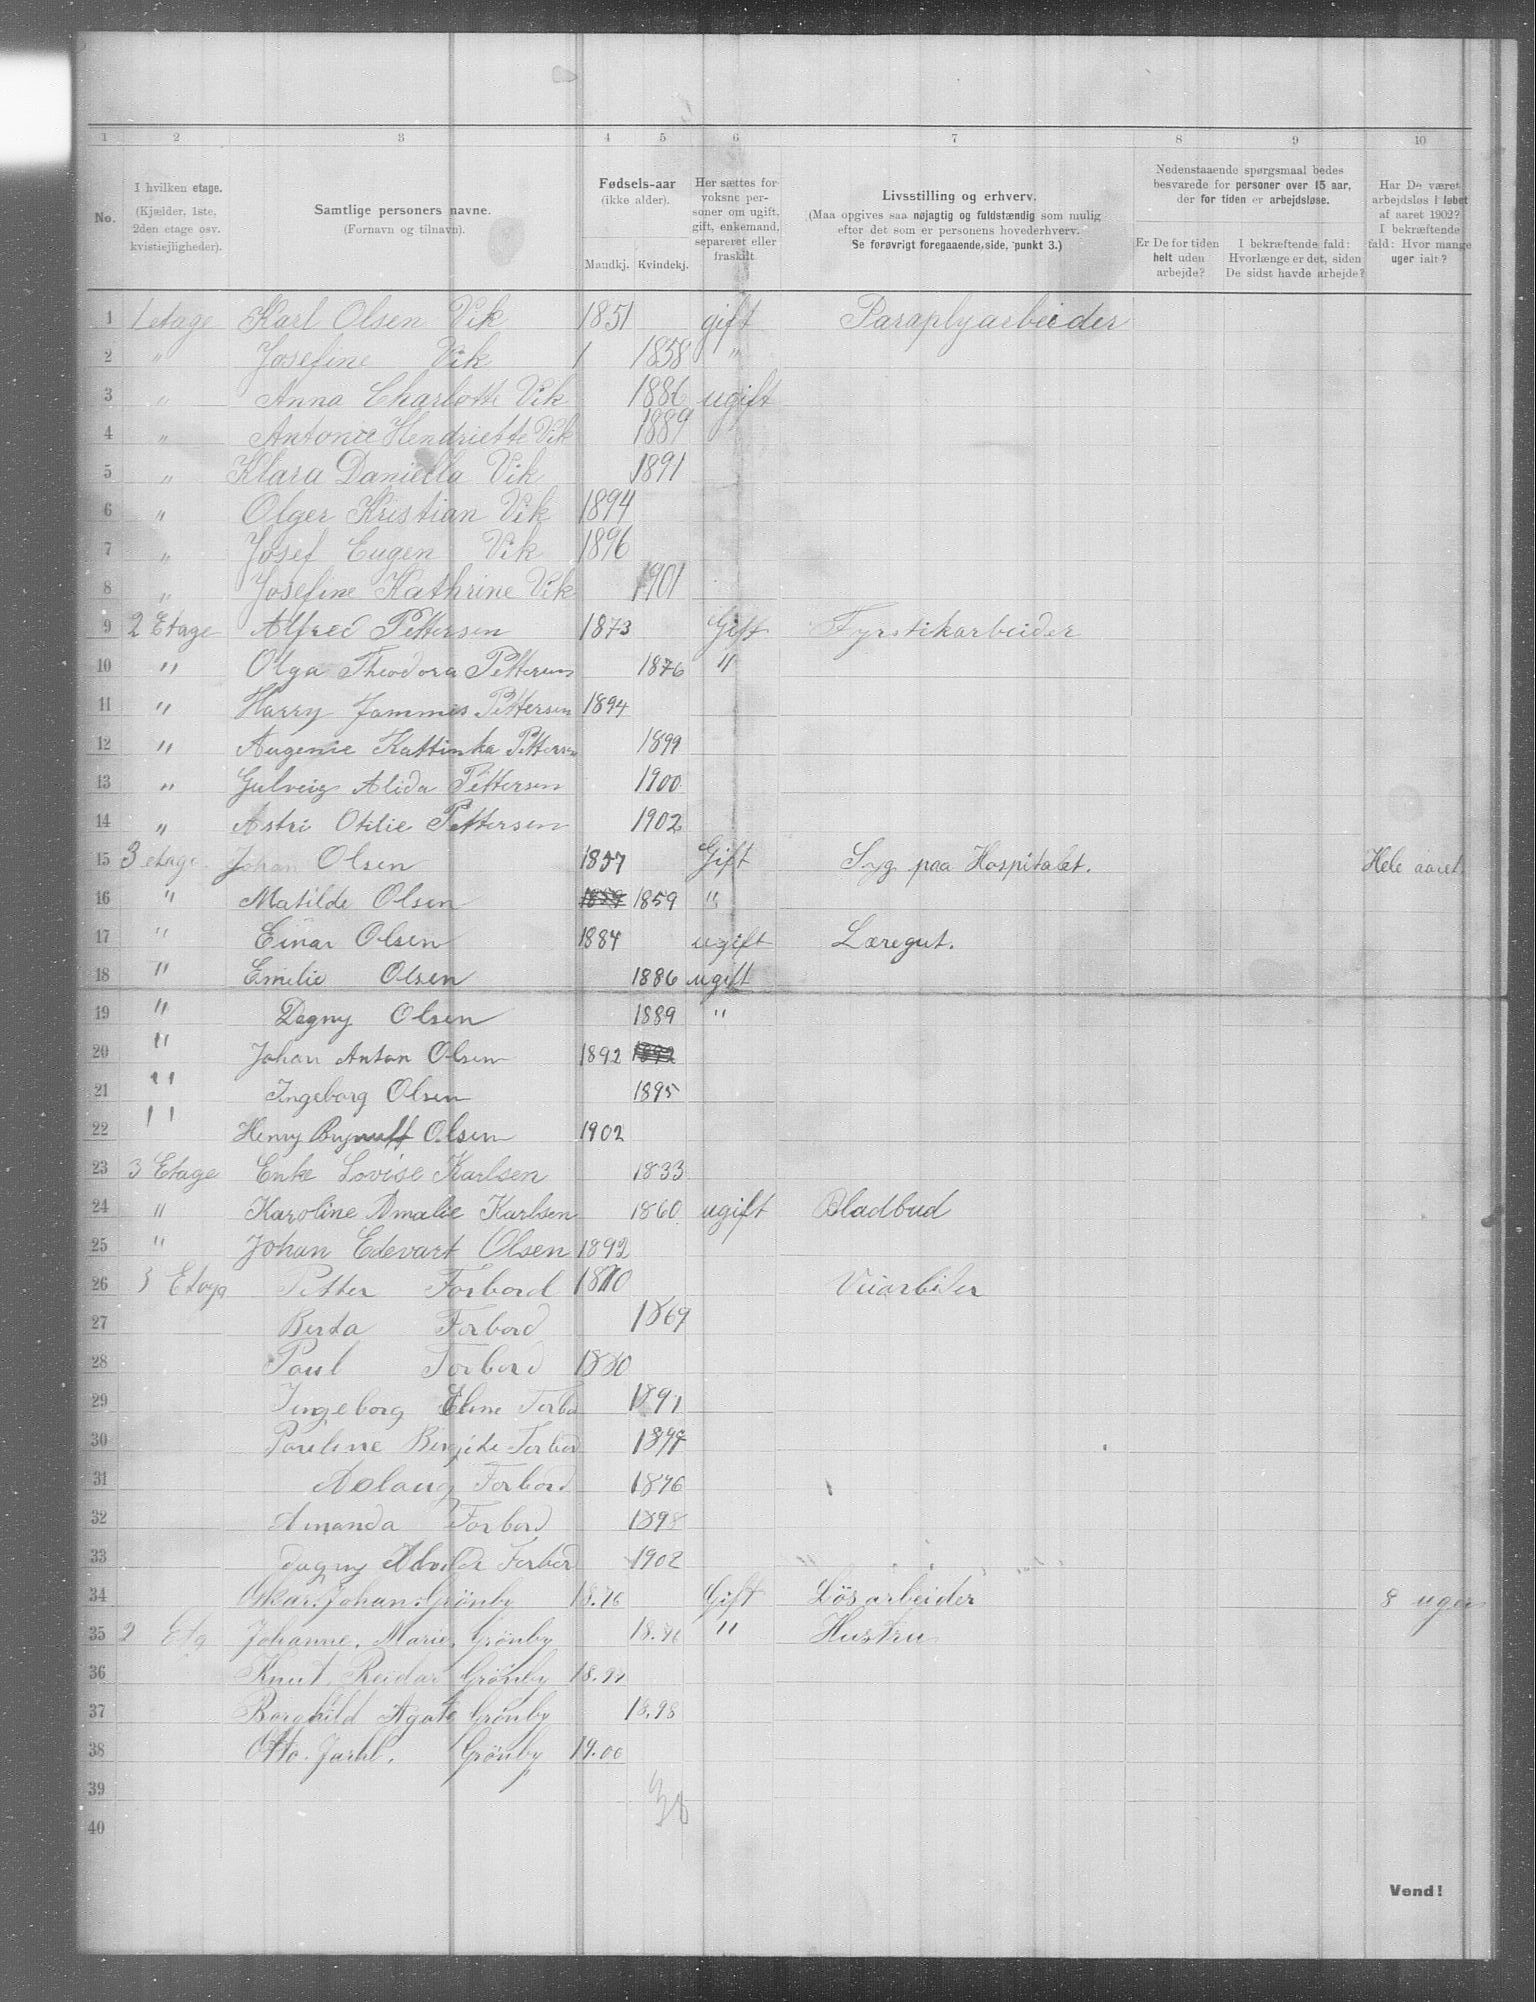 1 2 3 4 5 6 7 8 9 10
No.
I hvilken etage. (Kjælder, 1ste, 2den etage osv. kvistiejligheder).
Samtlige personers navne. (Fornavn og tilnavn).
Fødsels-aar (ikke alder). Mandkj. Kvindekj.
Her sættes for voksne personer om ugift, gift, enkemand, separeret eller fraskilt
Livsstilling og erhverv. (Maa opgives saa nøjagtig og fuldstændig som mulig efter det som er personens hovederhverv. Se forøvrigt foregaaende side, punkt 3.)
Nedenstaaende spørgsmaal bedes besvarede for personer over 15 aar, der for tiden er arbejdsløse.
Er De for tiden helt uden arbejde?
I bekræftende fald: Hvorlænge er det, siden De sidst havde arbejde?
Har De været arbejdsløs i løbet af aaret 1902? I bekræftende fald: Hvor mange uger ialt?
1 1 etage Karl Olsen Vik 1851 gift Paraplyarbeider
2 " Josefine Vik 1 1858 "
3 " Anna Charlotte Vik 1886 ugift
4 " Antonie Hendriette Vik 1889 "
5 " Klara Daniella Vik 1891
6 " Olger Kristian Vik 1894
7 " Josef Eugen Vik 1896
8 " Josefine Kathrine Vik 1901
9 2 Etage Alfred Pettersen 1873 Gift Fyrstikarbeider
10 " Olga Theodora Pettersen 1876 "
11 " Harry Jammes Pettersen 1894
12 " Augenie Kattinka Pettersen 1899
13 " Gulveig Alida Pettersen 1900
14 " Astri Otilie Pettersen 1902
15 3 etage. Johan Olsen 1857 Gift Syg paa Hospitalet. Hele aaret.
16 " Matilde Olsen 1859 1859 "
17 " Einar Olsen 1884 ugift Læregut.
18 " Emilie Olsen 1886 ugift
19 " Dagny Olsen 1889 "
20 " Johan Anton Olsen 1892 1892
21 " Ingeborg Olsen 1895
22 " Henry Olsen 1902
23 3 Etage Enke Lovise Karlsen 1833
24 " Karoline Amalie Karlsen 1860 ugift Bladbud
25 " Johan Edevart Olsen 1892
26 3 Etage Petter Forbord 1870 Veiarbeider
27 Berta Forbord 1869
28 Paul Forbord 1890
29 Ingeborg Eline Forbo 1891
30 Pauline Birgite Forbord 1894
31 Aslaug Forbord 1896
32 Amanda Forbord 1898
33 Dagny Forbord 1902
34 Oskar. Johan. Grönby 18.76 Gift Lösarbeider 8 uger
35 2 Etg Johanne. Marie. Grönby 18.76 " Hustru
36 Knut Reidar Grönby 18.99
37 Borghild Agate Grönby 18.98
38 Otto. Grönby 19.00
39
40
38
Vend!